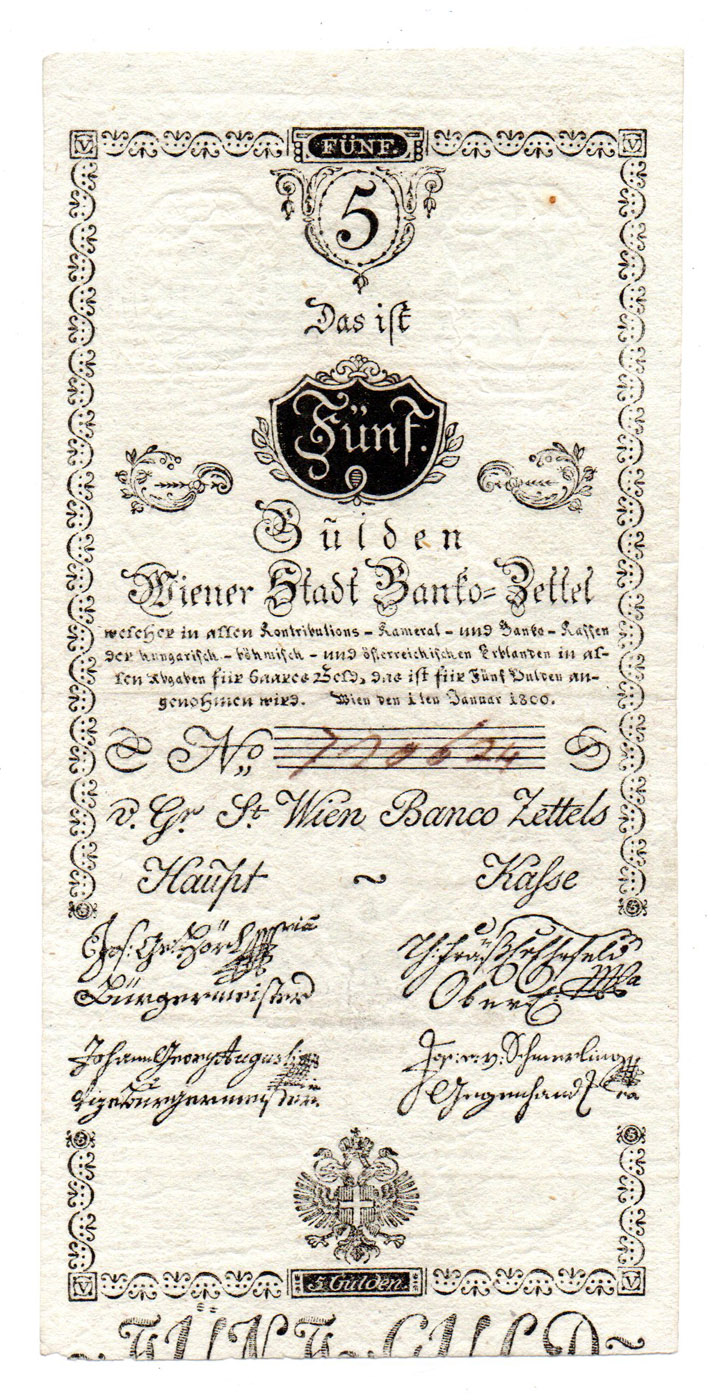 V FÜNF. V
5
Das ist
Fünf.
Gulden
Wiener Stadt Banko-Zettel
welcher in allen Kontributions-Kameral-und Banko-Kassen
der hungarisch-böhmisch-und österreichischen Erblanden in al-
len Abgaben für baares Geld, das ist für Fünf Gulden an-
genohmen wird. Wien den 1ten Januar 1800.
No
v. Gr St Wien Banco Zettels
Haupt ~ Kasse
5 5
Bürgermeister Ober
Johann Georg Augusti Jos: e: v: Schmerling
Vizebürgermeister Gegenhand
5 5
V 5 Gulden. V
FÜNF GULD